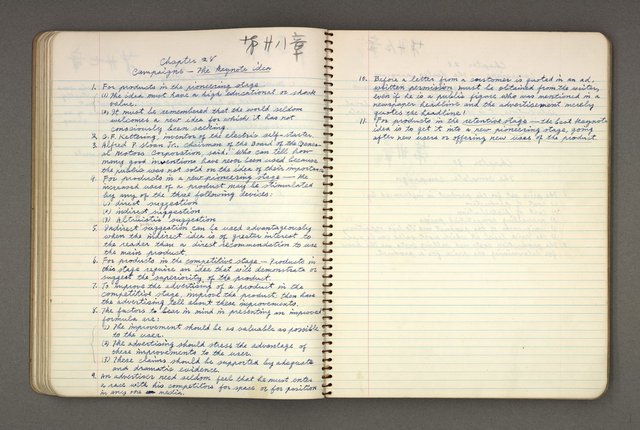 第廿八章
Chapter 28
Campaigns — The Keynote idea
1. For products in the pioneering stage —
(1) The idea must have a high educational or shock
value.
(2) It must be remembered that the world seldom
welcomes a new idea for which it has not
consciously been seeking.
2. C.F. Kettering, inventor of the electric self-starter.
3. Alfred P. Sloan Jr., chairman of the Board of the General
Motors Corporation, said: "Who can tell how
many good inventions have never been used because
the public was not sold on the idea of their importance
4. For products in a new pioneering stage — the
increased uses of a product may be stimulated
by any of the three following devices:
(1) direct suggestion
(2) indirect suggestion
(3) Altruistic suggestion
5. Indirect suggestion can be used advantageously
when the indirect idea is of greater interest to
the reader than a direct recommendation to use
the main product.
6. For products in the competitive stage — Products in
this stage require an idea that will demonstrate or
suggest the superiority of the product.
7. To improve the advertising of a product in the
competitive stage, improve the product, then have
the advertising tell about these improvements.
8. The factors to bear in mind in presenting an improved
formula are:
(1) The improvement should be as valuable as possible
to the user.
(2) The advertising should stress the advantage of
these improvements to the user.
(3) These claims should be supported by adequate
and dramatic evidence.
9. An advertiser need seldom feel that he must enter
a race with his competitors for space or for position
in any one media.
10. Before a letter from a customer is quoted in an ad,
written permission must be obtained from the writer,
even if he is a public figure who was mentioned in a
newspaper headline and the advertisement merely
quotes the headline!
11. For products in the retentive stage — the best Keynote
idea is to get it into a new pioneering stage, going
after new users or offering new uses of the product